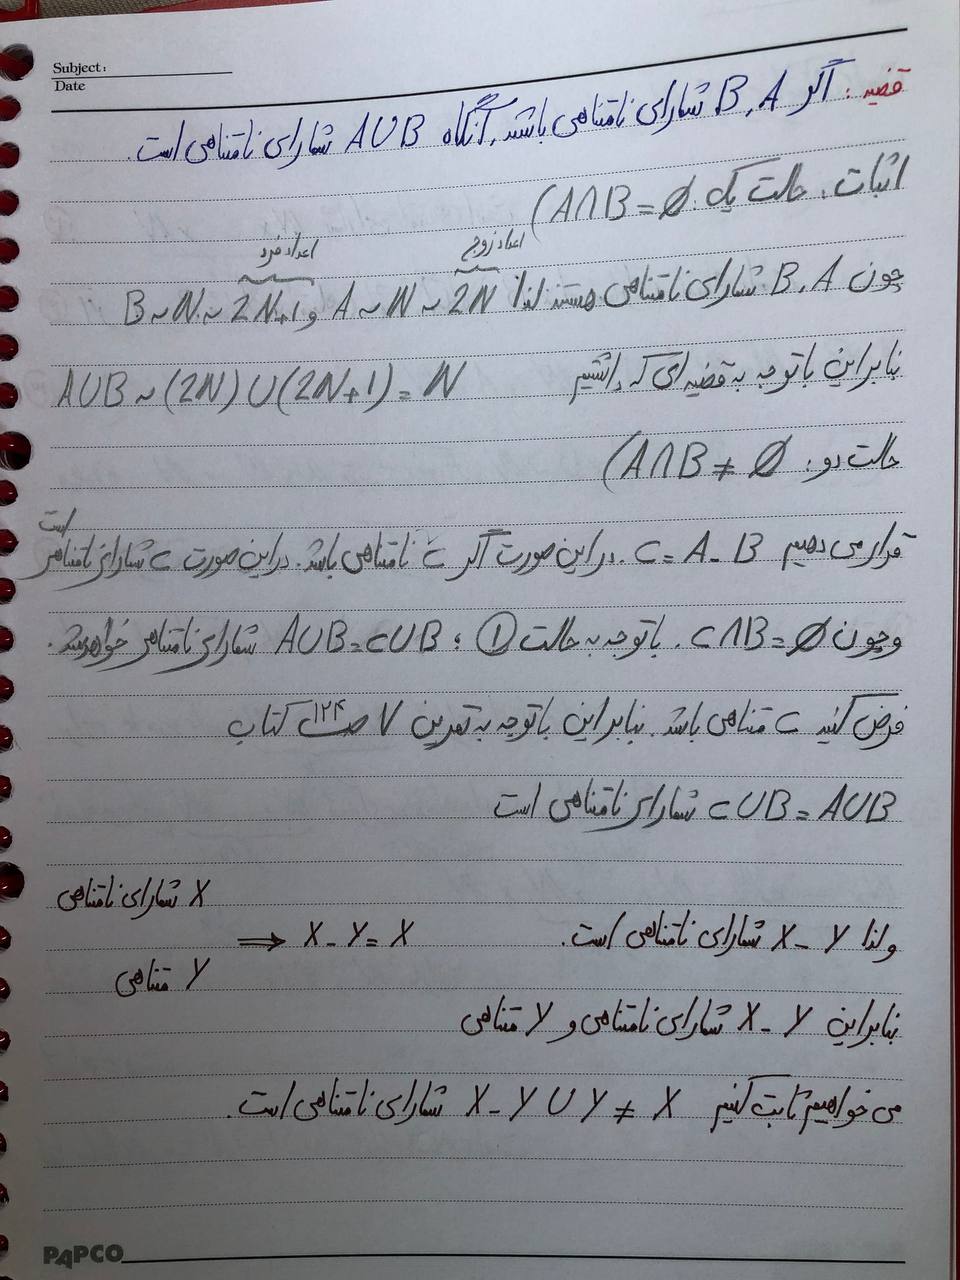 Subject:
Date
قضیه: اگر B , A شمارای نامتناهی باشند، آنگاه A∪B شمارای نامتناهی است.
اثبات. حالت یک: A∩B = ∅)
اعداد زوج اعداد فرد
چون B , A شمارای نامتناهی هستند لذا A ~ N ~ 2N و B ~ N ~ 2N+1
بنابراین با توجه به قضیه ای که داشتیم A∪B ~ (2N) ∪ (2N+1) = N
حالت دو: A∩B ≠ ∅)
قرار می دهیم C = A - B. در این صورت اگر C نامتناهی باشد. در این صورت C شمارای نامتناهی است
و چون C∩B = ∅. با توجه به حالت ①؛ A∪B = C∪B شمارای نامتناهی خواهد شد.
فرض کنید C متناهی باشد. بنابراین با توجه به تمرین ۷ ص ۱۲۴ کتاب
C∪B = A∪B شمارای نامتناهی است
X شمارای نامتناهی
Y متناهی
⟹ X - Y = X
ولذا X - Y شمارای نامتناهی است.
بنابراین X - Y شمارای نامتناهی و Y متناهی
می خواهیم ثابت کنیم X - Y ∪ Y ≠ X شمارای نامتناهی است.
PAPCO